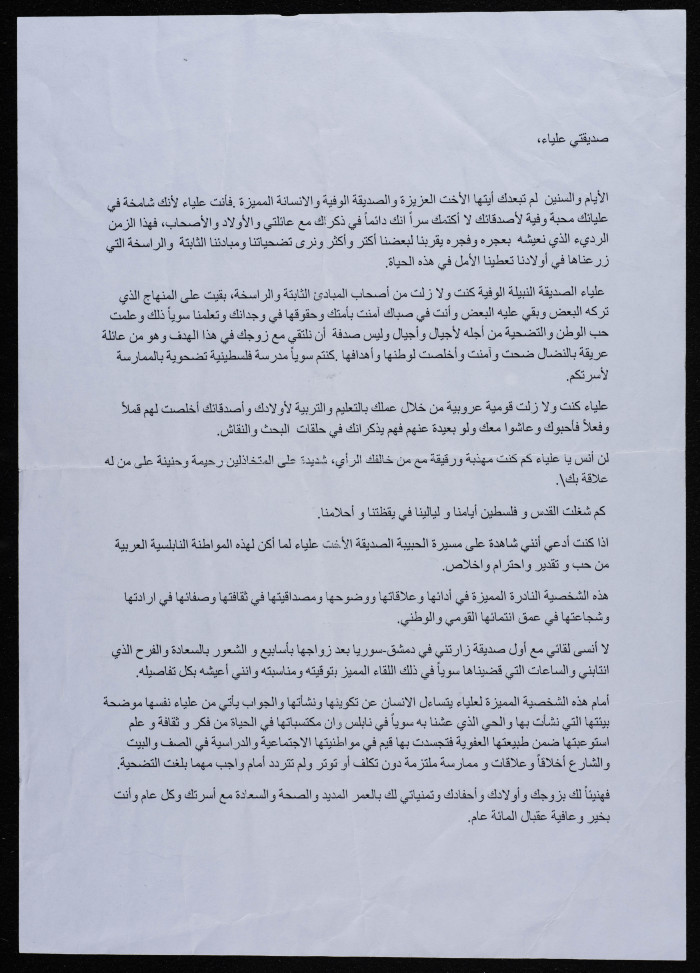 صديقتي علياء،
الأيام والسنين لم تبعدك أيتها الأخت العزيزة والصديقة الوفية والانسانة المميزة .فأنت علياء لأنك شامخة في
عليائك محبة وفية لأصدقائك لا أكتمك سراً انك دائماً في ذكراك مع عائلتي والأولاد والأصحاب، فهذا الزمن
الرديء الذي نعيشه بعجره وفجره يقربنا لبعضنا أكتر وأكثر ونرى تضحياتنا ومبادئنا الثابتة والراسخة التي
زرعناها في أولادنا تعطينا الأمل في هذه الحياة.
علياء الصديقة النبيلة الوفية كنت ولا زلت من أصحاب المبادئ الثابتة والراسخة، بقيت على المنهاج الذي
تركه البعض وبقي عليه البعض وأنت في صباك آمنت بأمتك وحقوقها في وجدانك وتعلمنا سوياً ذلك وعلمت
حب الوطن والتضحية من أجله لأجيال وأجيال وليس صدفة أن نلتقي مع زوجك في هذا الهدف وهو من عائلة
عريقة بالنضال ضحت وآمنت وأخلصت لوطنها وأهدافها .كنتم سوياً مدرسة فلسطينية تضحوية بالممارسة
لأسرتكم.
علياء كنت ولا زلت قومية عروبية من خلال عملك بالتعليم والتربية لأولادك وأصدقائك أخلصت لهم قملاً
وفعلاً فأحبوك وعاشوا معك ولو بعيدة عنهم فهم يذكرانك في حلقات البحث والنقاش.
لن أنس يا علياء كم كنت مهذبة ورقيقة مع من خالفك الرأي، شديدة على المتخاذلين رحيمة وحنينة على من له
علاقة بك\.
كم شغلت القدس و فلسطين أيامنا و ليالينا في يقظتنا و أحلامنا.
اذا كنت أدعي أنني شاهدة على مسيرة الحبيبة الصديقة الأخت علياء لما أكن لهذه المواطنة النابلسية العربية
من حب و تقدير واحترام واخلاص.
هذه الشخصية النادرة المميزة في أدائها وعلاقاتها ووضوحها ومصداقيتها في ثقافتها وصفائها في ارادتها
وشجاعتها في عمق انتمائها القومي والوطني.
لا أنسى لقائي مع أول صديقة زارتني في دمشق-سوريا بعد زواجها بأسابيع و الشعور بالسعادة والفرح الذي
انتابني والساعات التي قضيناها سوياً في ذلك اللقاء المميز بتوقيته ومناسبته وانني أعيشه بكل تفاصيله.
أمام هذه الشخصية المميزة لعلياء يتساءل الانسان عن تكوينها ونشأتها والجواب يأتي من علياء نفسها موضحة
بيئتها التي نشأت بها والحي الذي عشنا به سوياً في نابلس وان مكتسباتها في الحياة من فكر و ثقافة و علم
استوعبتها ضمن طبيعتها العفوية فتجسدت بها قيم في مواطنيتها الاجتماعية والدراسية في الصف والبيت
والشارع أخلاقاً وعلاقات و ممارسة ملتزمة دون تكلف أو توتر ولم تتردد أمام واجب مهما بلغت التضحية.
فهنيئاً لك بزوجك وأولادك وأحفادك وتمنياتي لك بالعمر المديد والصحة والسعادة مع أسرتك وكل عام وأنت
بخير وعافية عقبال المائة عام.